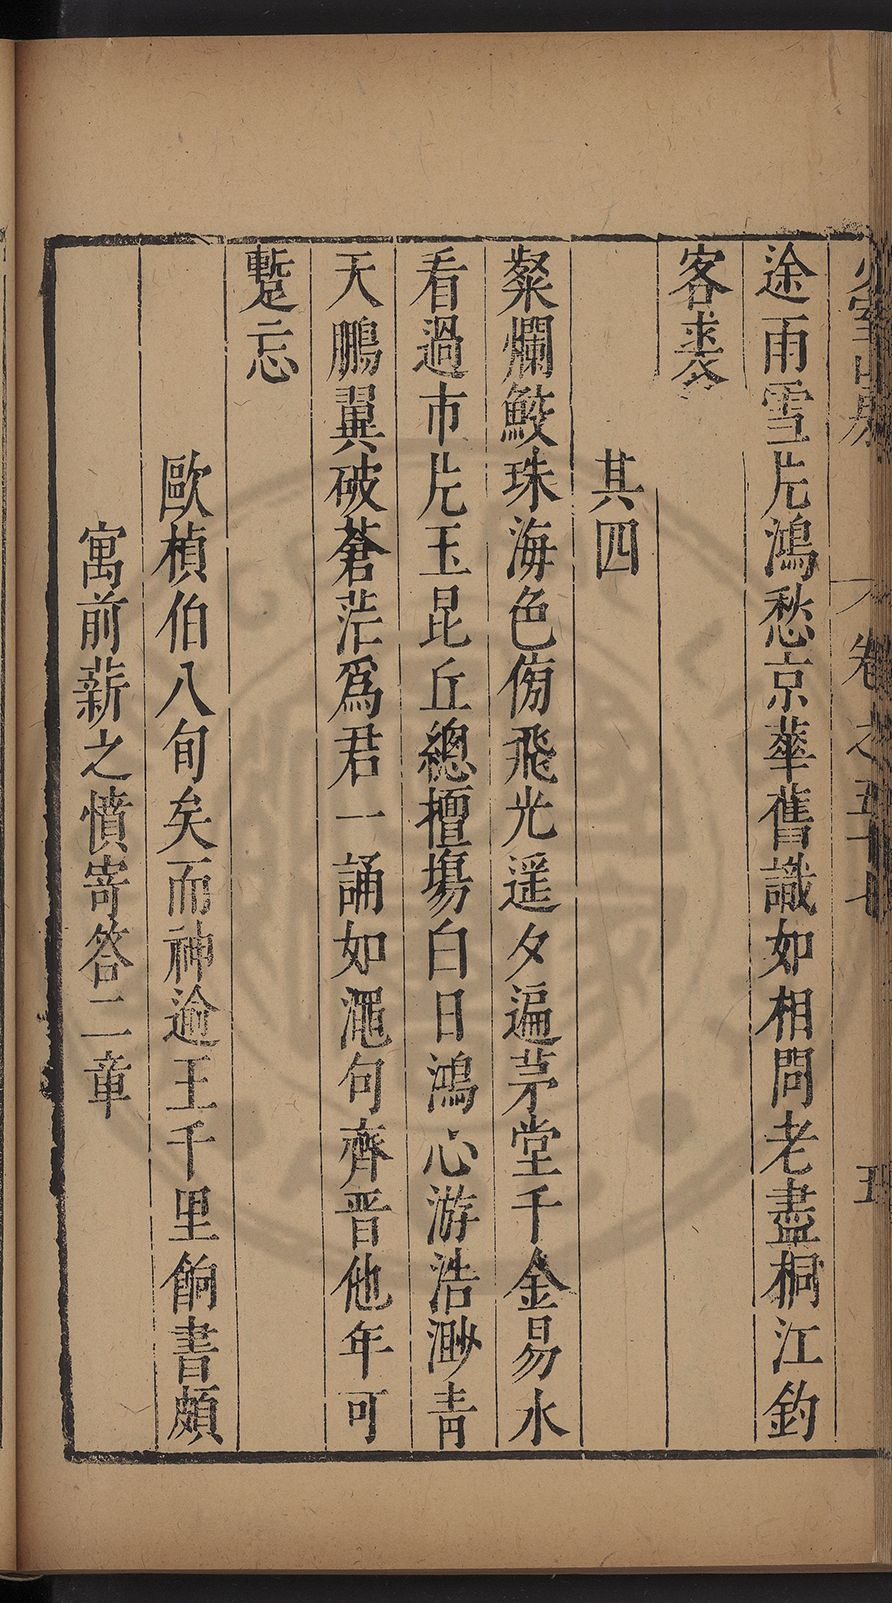 少室山房
卷之五十七
五
途雨雪片鴻愁京華舊識如相問老盡桐江釣
客裘
其四
粲爛鮫珠海色侮飛光遥夕遍茅堂千金易水
看過市片玉昆丘總擅塲白日鴻心游浩渺青
天鵬翼破蒼茫爲君一誦如澠句齊晋他年可
蹔忘
歐楨伯八旬矣而神逾王千里餉書頗
寓前薪之憤寄答二章